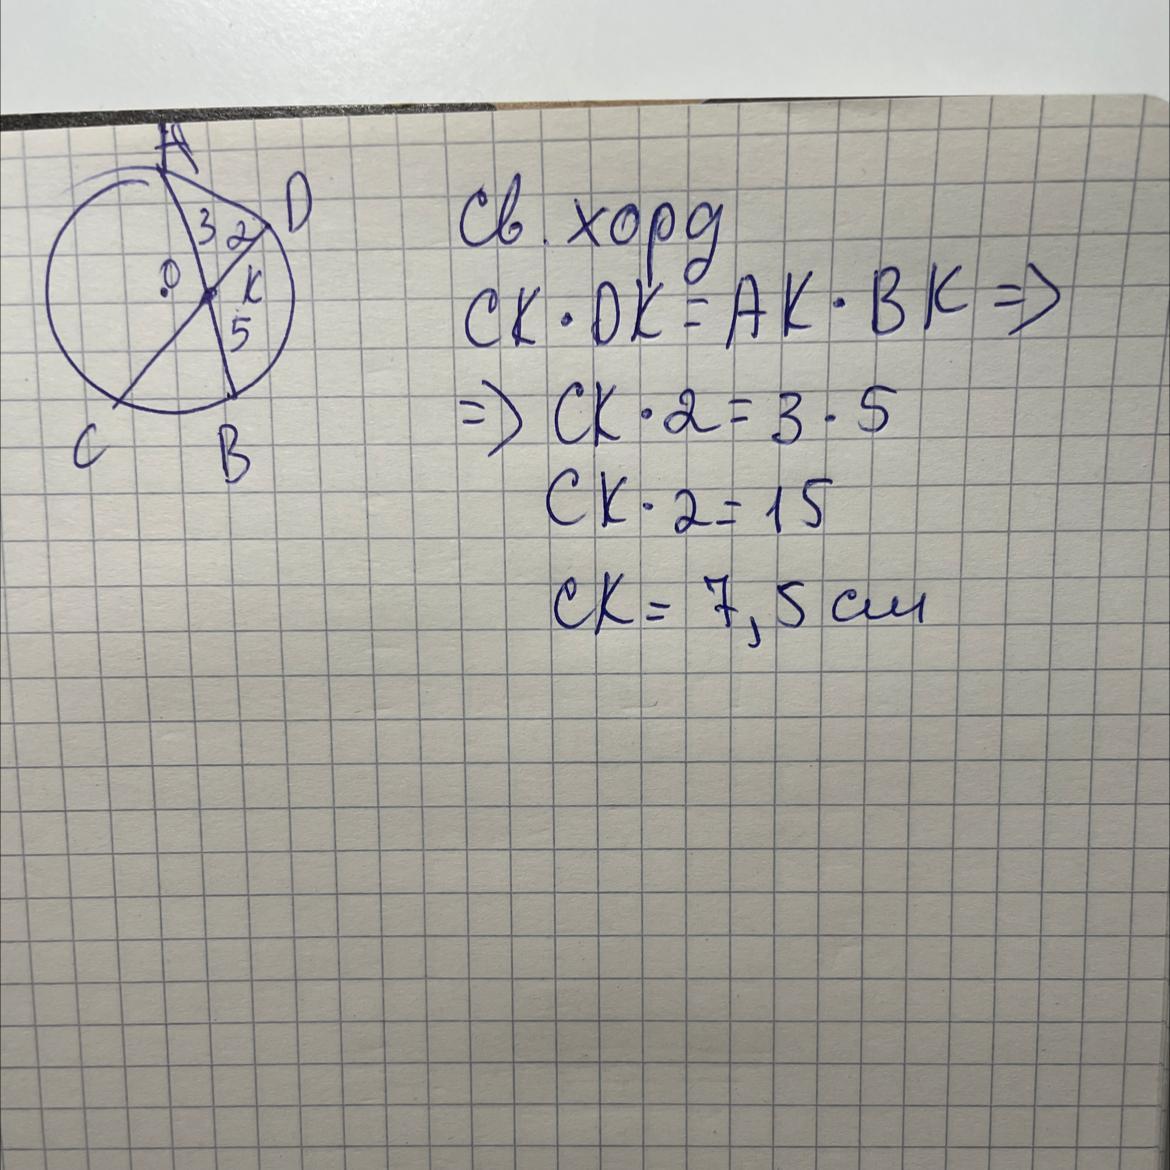 A
D
3
2
O
K
5
C
B
Св. хорд
CK · DK = AK · BK =>
=> CK · 2 = 3 · 5
CK · 2 = 15
CK = 7,5 см